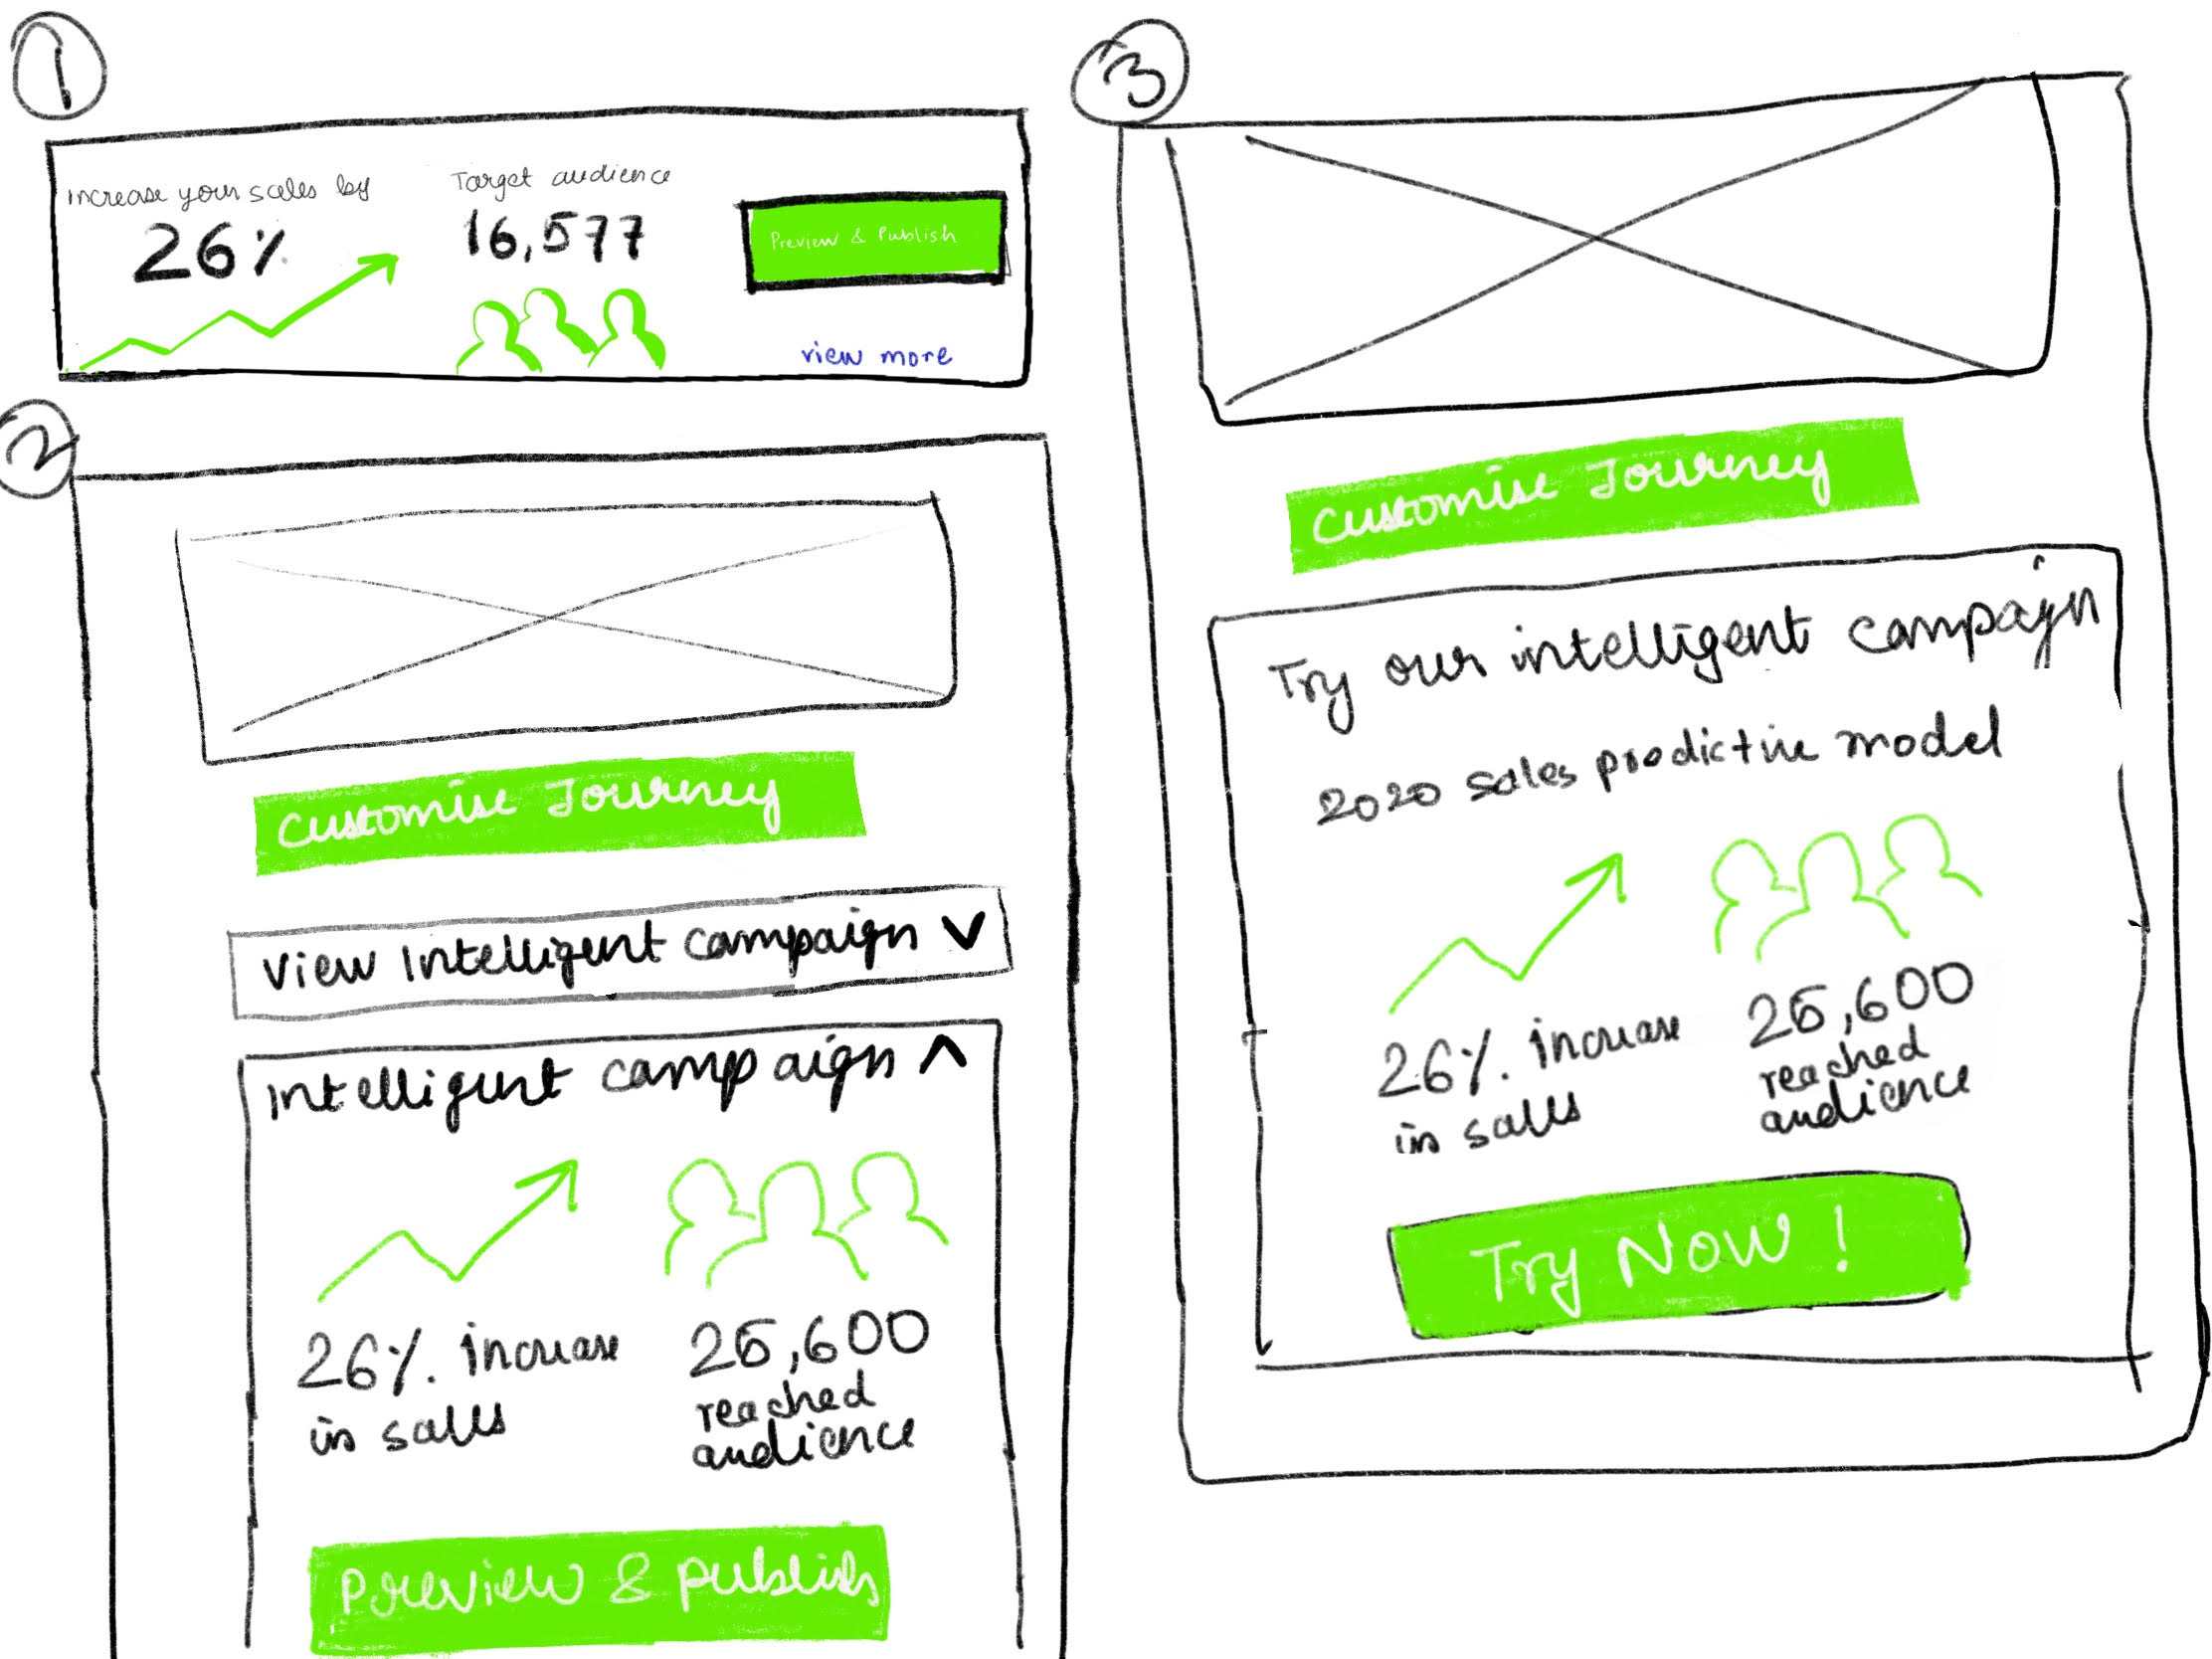 1
Increase your sales by
26%
Target audience
16,577
Preview & Publish
view more
2
Customise Journey
View Intelligent campaign
Intelligent campaign
26% increase
in sales
25,600
reached
audience
Preview & publish
3
Customise Journey
Try our intelligent campaign
2020 sales predictive model
26% increase
in sales
25,600
reached
audience
Try Now !